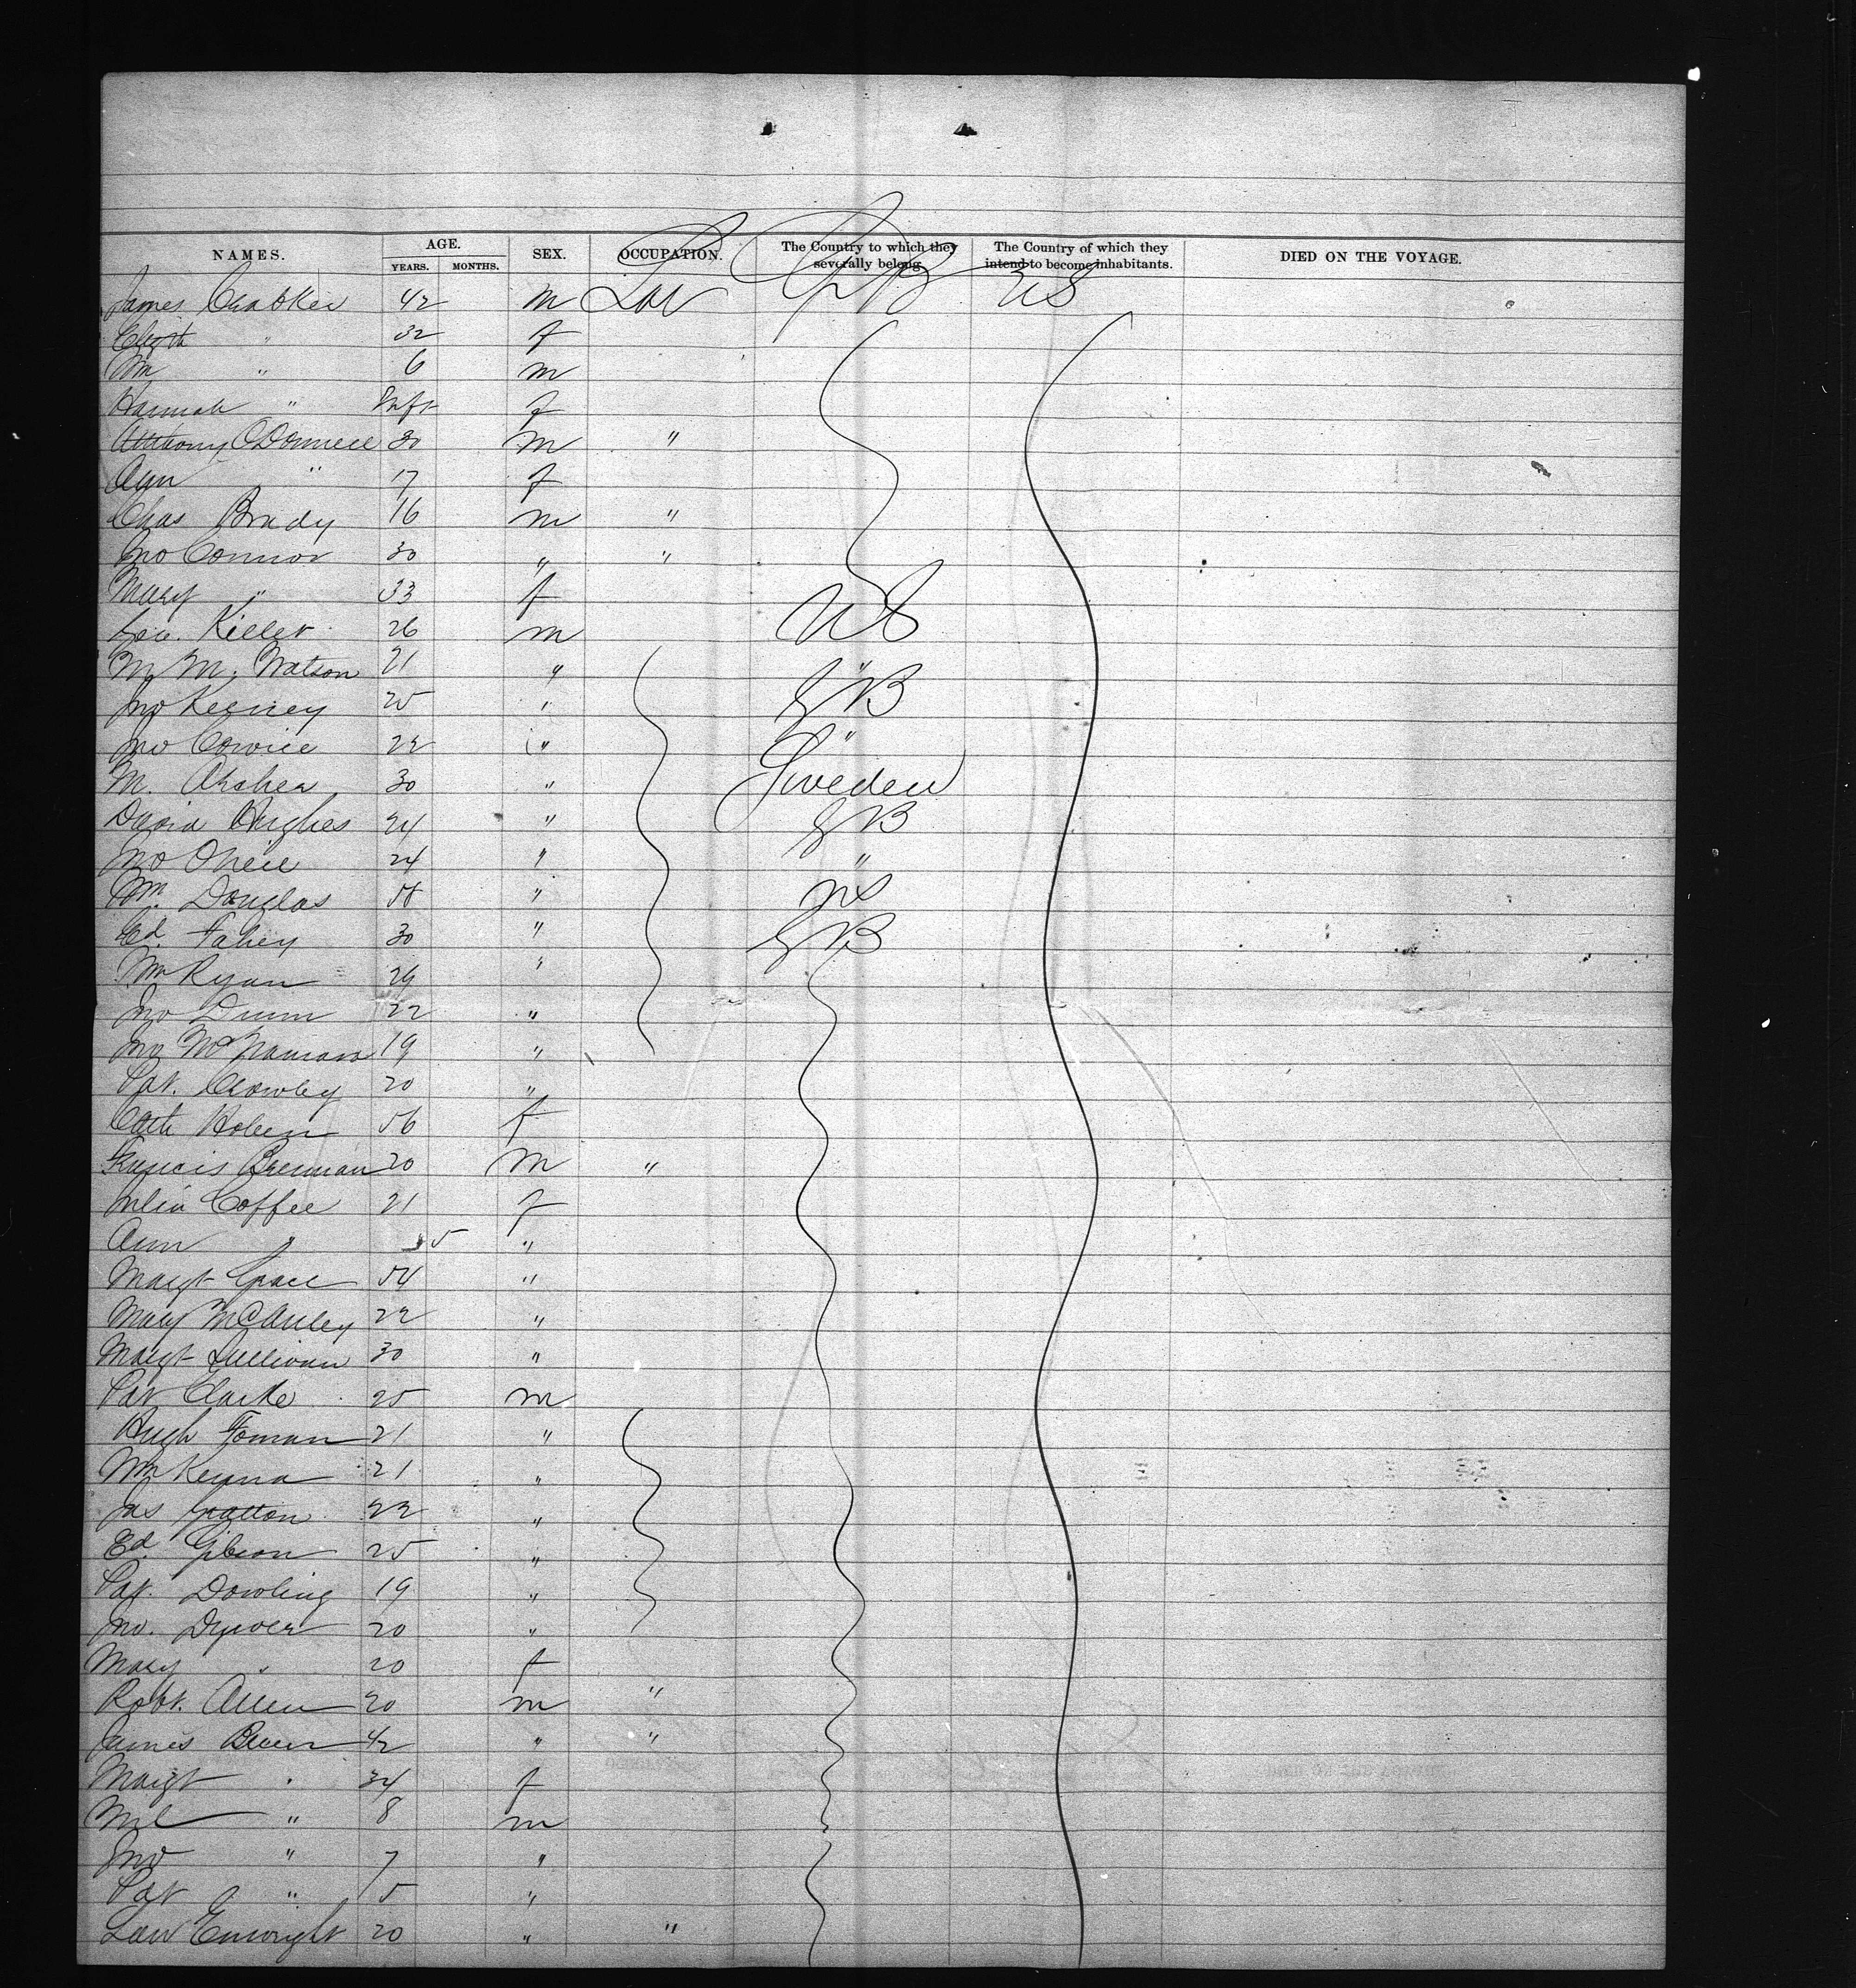 NAMES. AGE. YEARS. MONTHS. SEX. OCCUPATION. The Country to which they severally belong. The Country of which they intend to become inhabitants. DIED ON THE VOYAGE.
James 42 m Lab GB US
" 32 f
Wm " 6 m
Hannah " Inft f
Anthony ODonnell 30 m "
Ann " 17 f
Chas Brady 16 m "
Jno Connor 30 " "
Mary " 33 f
Geo. Keller 26 m US
M. M. Watson 21 " "
Jno Keeney 25 " GB
Jno 22 " "
M. 30 " Sweden
David Hughes 24 " GB
Jno Oneil 24 " "
Wm. Douglas " US
Ed. Fahey 30 " GB
Wm Ryan "
Jno 22 "
Jno McNamara 19 "
Pat. Crowley 20 "
Cath Hoben 56 f
Francis Brennan 20 m "
Julia Coffee 21 f
Ann " 5 "
Margt Grace 54 "
Mary McAuley 22 "
Margt Sullivan 30 "
Pat Clarke 25 m
Hugh 21 "
Wm Kenna 21 "
Jas Gratton 22 "
Ed. Gibson 25 "
Pat. Dowling 19 "
Jno. 20 "
Mary " 20 f
Robt. Allen 20 m "
James 42 " "
Margt " 34 f
" 8 m
Jno " 7 "
Pat " 5 "
Law Enwright 20 " "